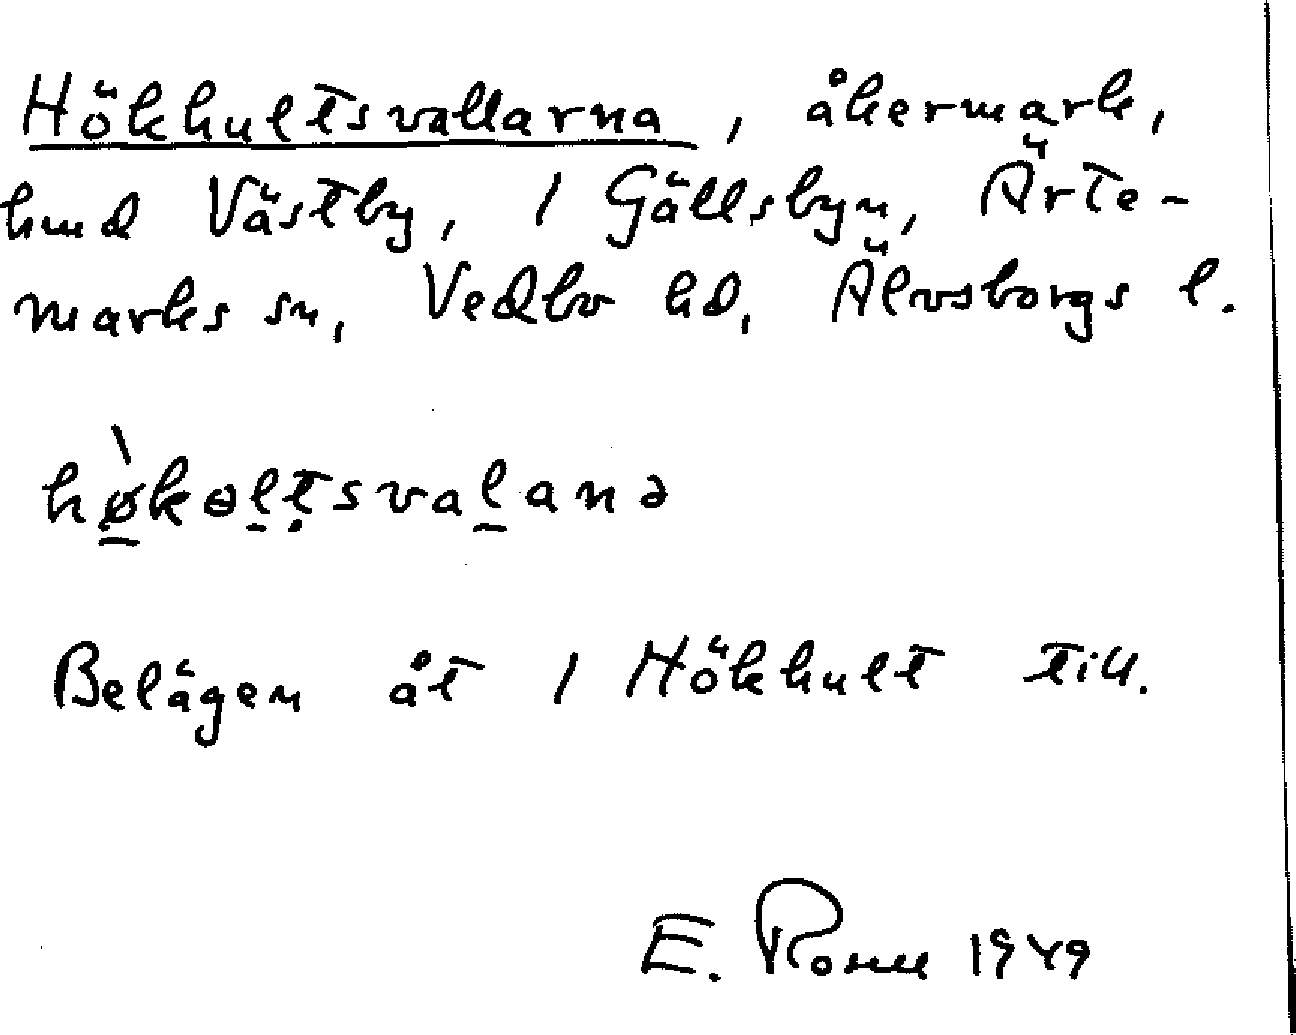 Hökhultsvallarna, åkermark,
hmd Västby, 1 Gällsbyn, Ärte-
marks sn, Vedbo hd, Älvsborgs l.
hø̀kəltsvalanə
Belägen åt 1 Hökhult till.
E. 1949